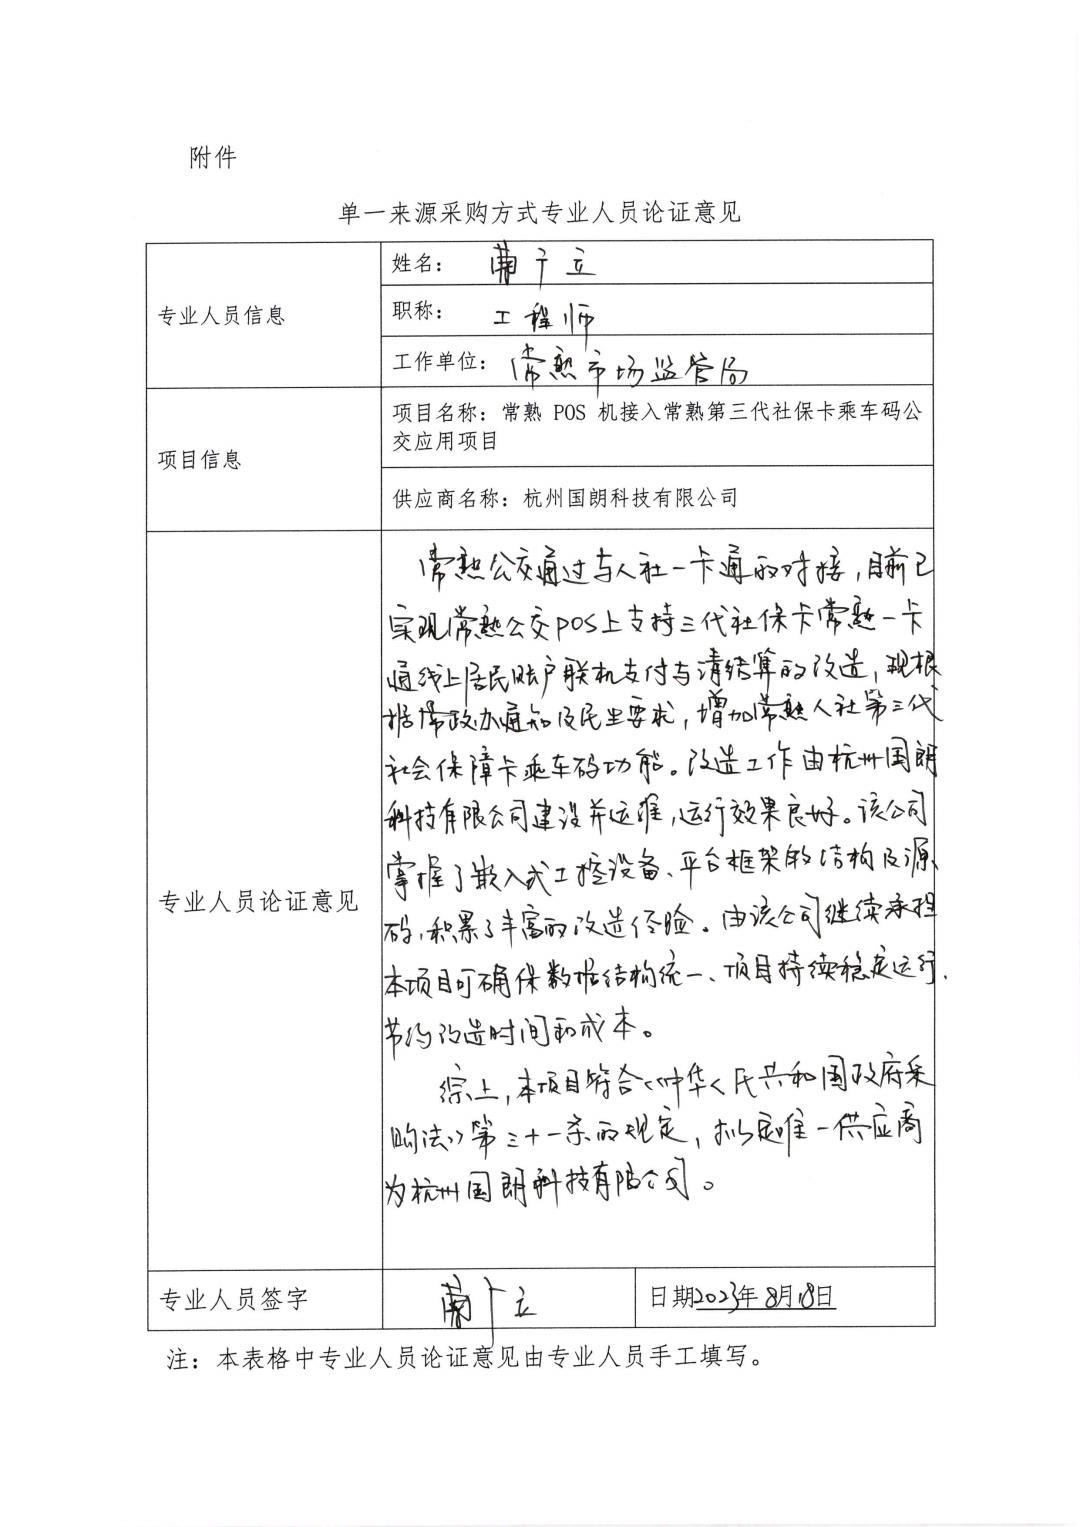 附件
单一来源采购方式专业人员论证意见
专业人员信息
姓名：
职称： 工程师
工作单位：常熟市场监管局
项目信息
项目名称：常熟 POS 机接入常熟第三代社保卡乘车码公
交应用项目
供应商名称：杭州国朗科技有限公司
专业人员论证意见
常熟公交通过与人社一卡通的对接，目前已
实现常熟公交POS上支持三代社保卡常熟一卡
通线上居民账户联机支付与清结算的改造，现根
据常政办通知及民生要求，增加常熟人社第三代
社会保障卡乘车码功能。改造工作由杭州国朗
科技有限公司建设并运维，运行效果良好。该公司
掌握了嵌入式工控设备、平台框架的结构及源
码，积累了丰富的改造经验。由该公司继续承担
本项目可确保数据结构统一、项目持续稳定运行、
节约改造时间和成本。
综上，本项目符合《中华人民共和国政府采
购法》第三十一条的规定，拟定唯一供应商
为杭州国朗科技有限公司。
专业人员签字
日期2023年8月18日
注：本表格中专业人员论证意见由专业人员手工填写。